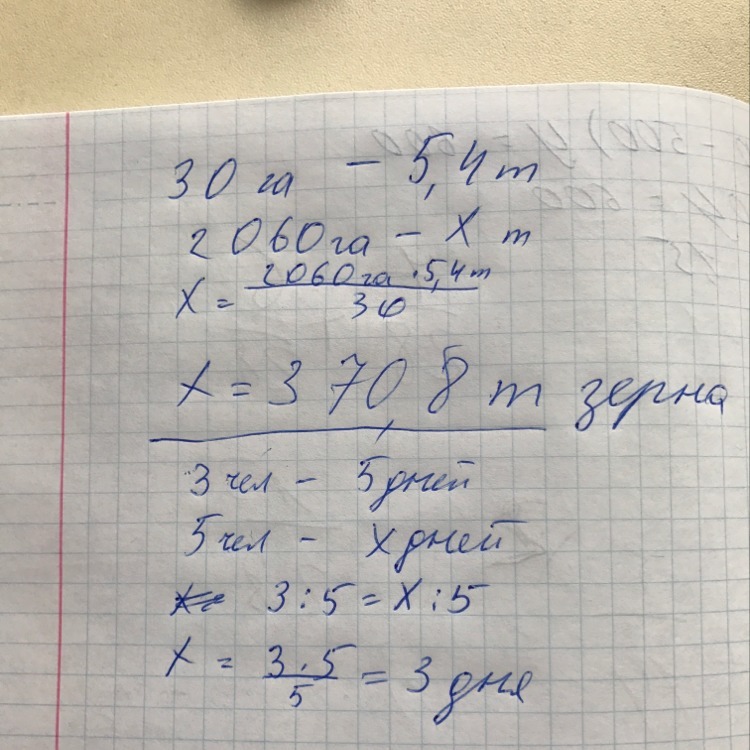 30 га - 5,4 т
2060 га - X т
X = 2060 га · 5,4 т / 30
X = 370,8 т зерна
3 чел - 5 дней
5 чел - X дней
3 : 5 = X : 5
X = 3 · 5 / 5 = 3 дня